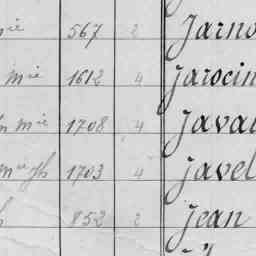 mie 567 2 Jarno
mie 1612 4 Jarocin
m mie 1708 4 Javau
migh 1703 4 Javel
h 852 2 Jean